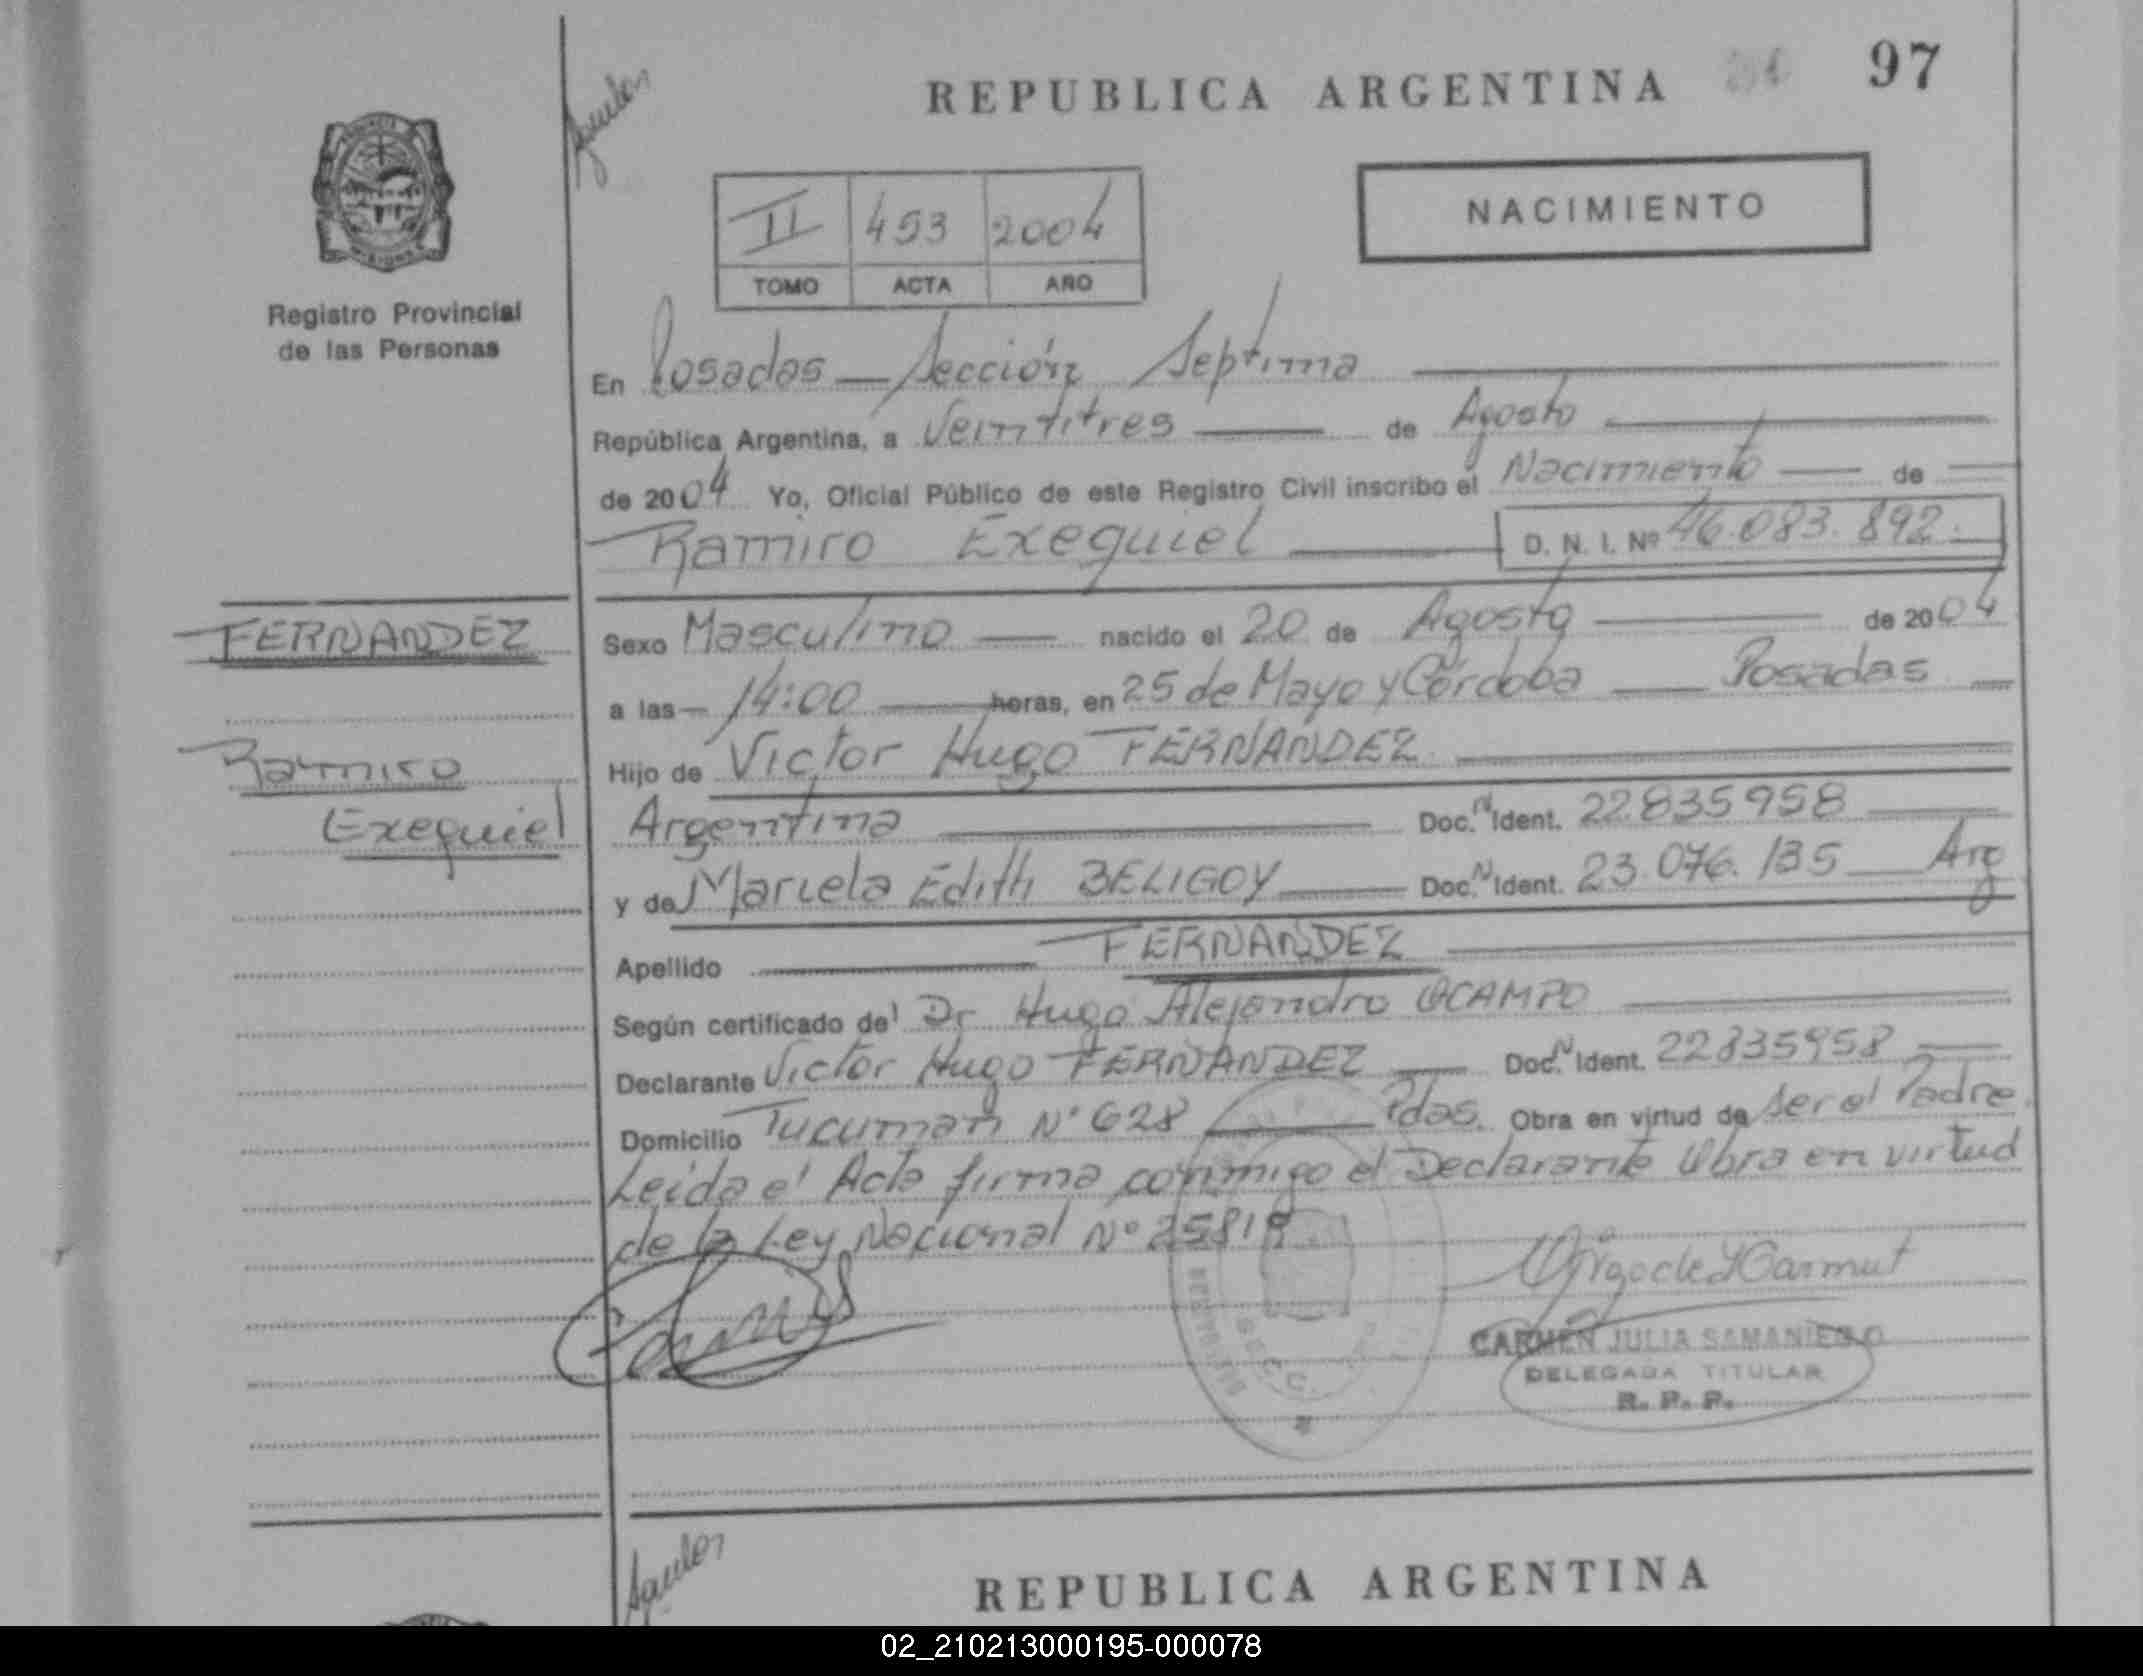 REPUBLICA ARGENTINA 97
II 453 2004
TOMO ACTA AÑO
NACIMIENTO
Registro Provincial
de las Personas
En Posadas — Sección Septima
República Argentina, a Veintitres de Agosto
de 2004 Yo, Oficial Público de este Registro Civil inscribo el Nacimiento de
Ramiro Exequiel D. N. I. Nº 46.083.892.
FERNANDEZ
Ramiro
Exequiel
Sexo Masculino nacido el 20 de Agosto de 2004
a las 14:00 horas, en 25 de Mayo y Córdoba Posadas
Hijo de Victor Hugo FERNANDEZ
Argentina Doc. N Ident. 22835958
y de Mariela Edith BELIGOY Doc. N Ident. 23.076.135 Arg
Apellido FERNANDEZ
Según certificado del Dr Hugo Alejandro OCAMPO
Declarante Victor Hugo FERNANDEZ Doc. N Ident. 22835958
Domicilio Tucuman Nº 628 Pdas. Obra en virtud de ser el Padre
Leida el Acta firma conmigo el Declarante Obra en virtud
de la Ley Nacional Nº 25819
CARMEN JULIA SAMANIEGO
DELEGADA TITULAR
R. P. P.
REPUBLICA ARGENTINA
02_210213000195-000078